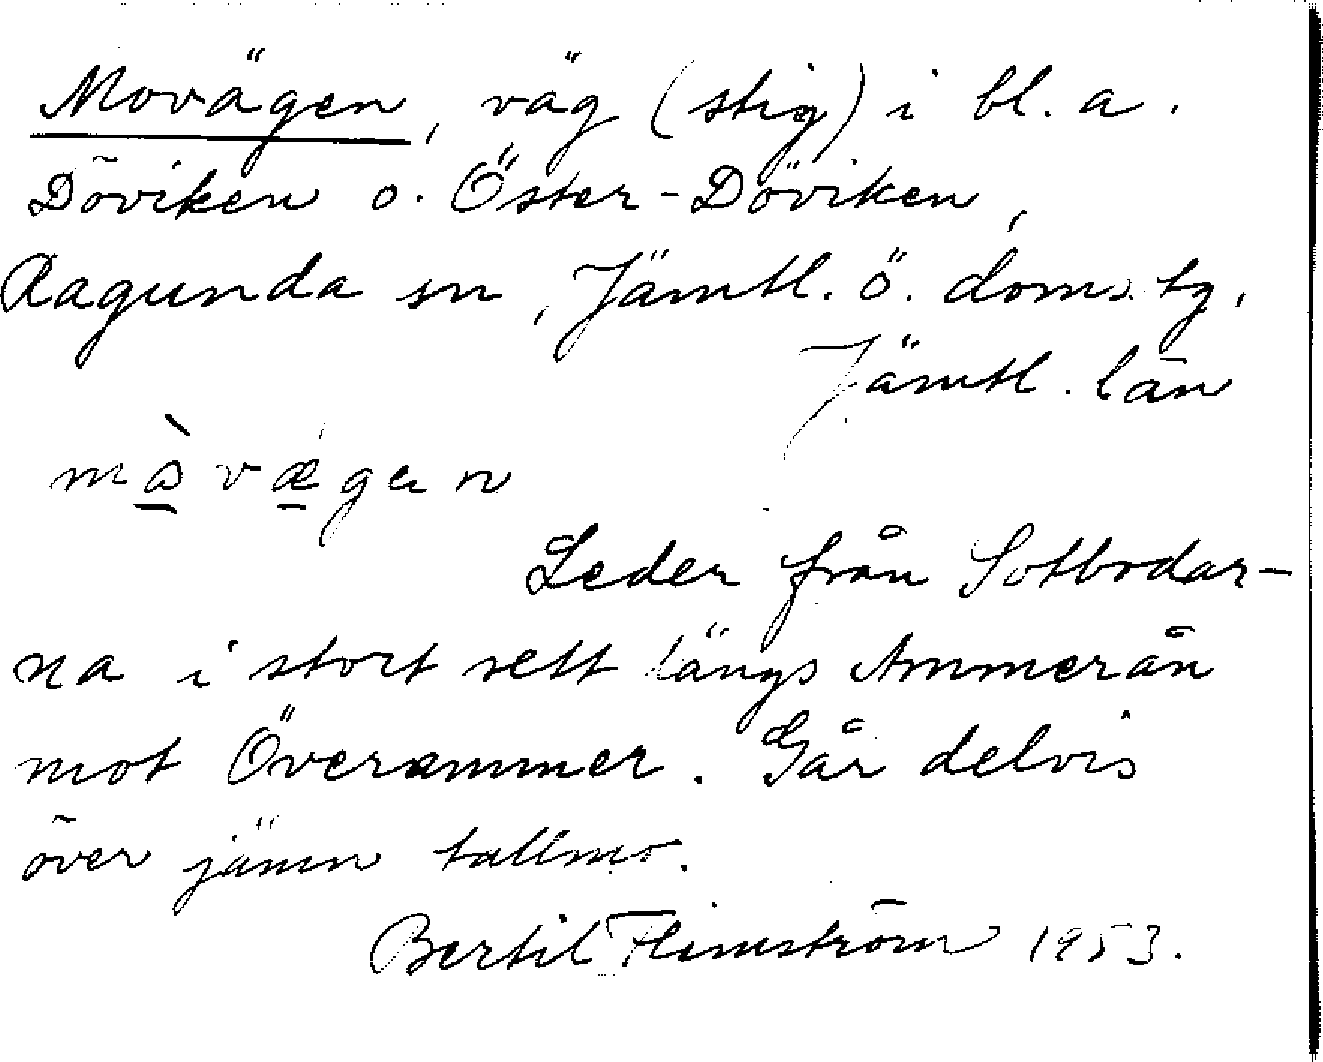 Movägen, väg (stig) i bl. a.
Döviken o. Öster-Döviken,
Ragunda sn, Jämtl. ö. doms. tg,
Jämtl. län
Leder från Sotbodar-
na i stort sett längs Ammerån
mot Överammer. Går delvis
över jämn tallmo.
Bertil Flemström 1953.